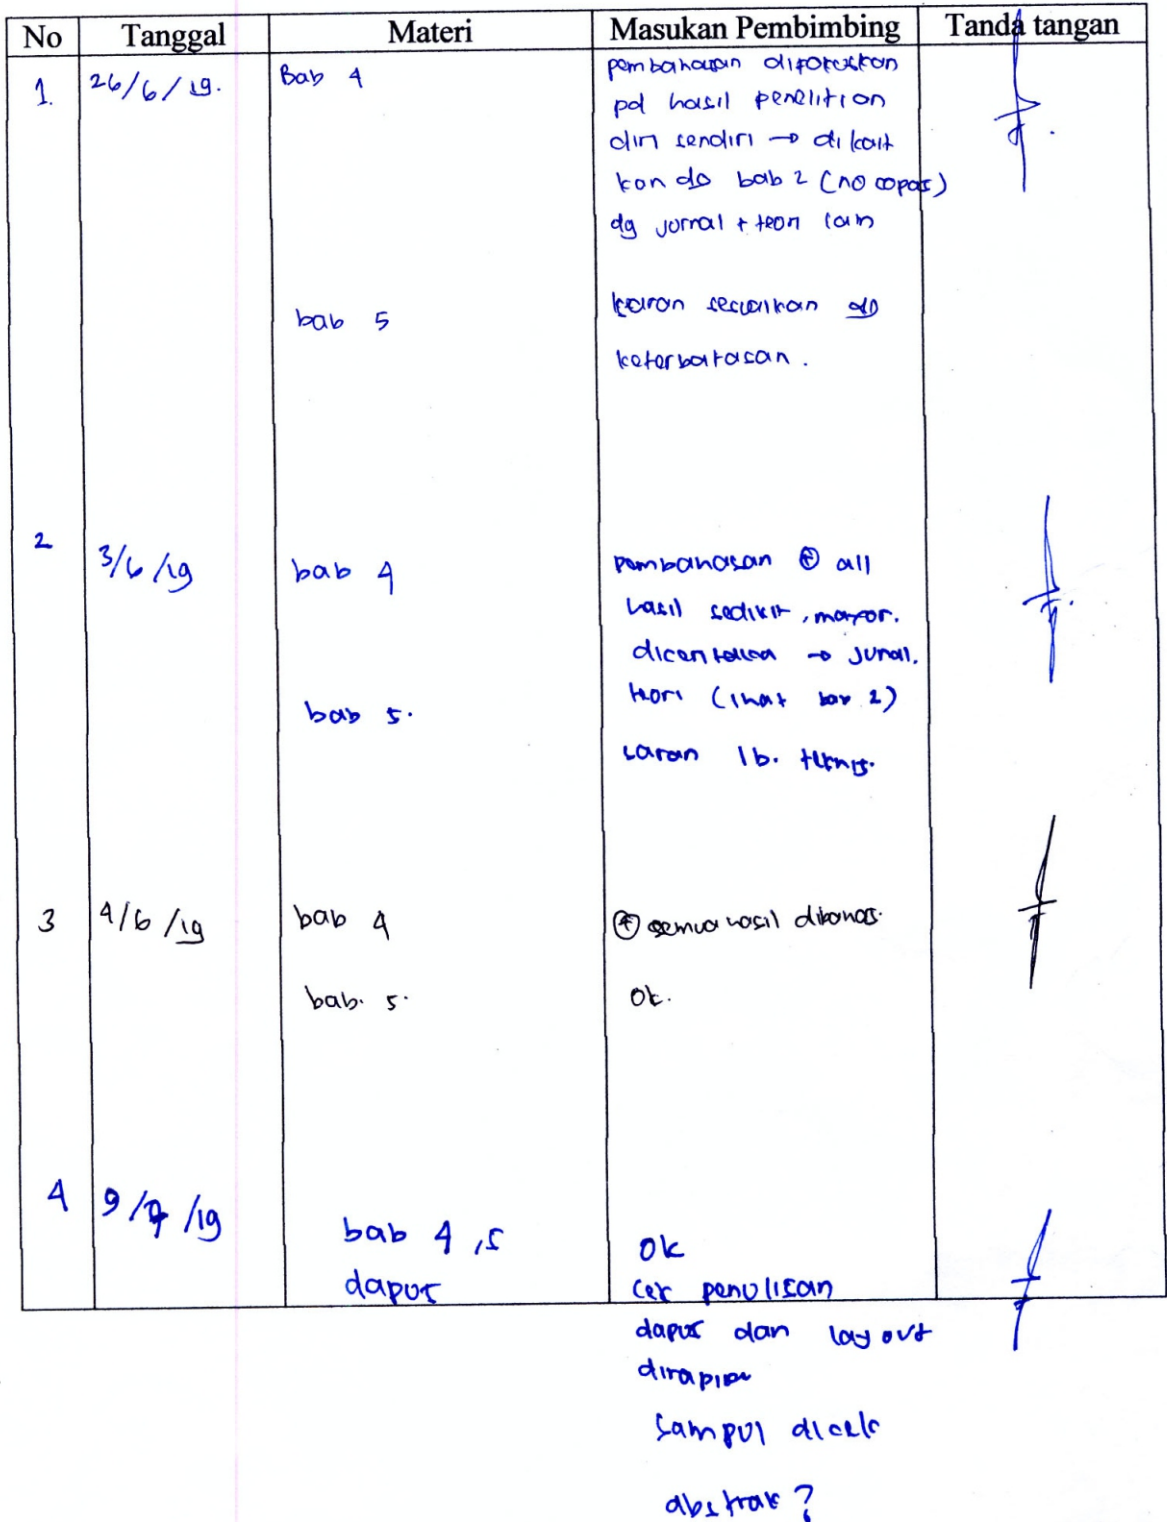 No Tanggal Materi Masukan Pembimbing Tanda tangan
1. 26/6/19. Bab 4 pembahasan difokuskan
pd hasil penelitian
diri sendiri → dikait
kan dg bab 2 (no copas)
dg jurnal + teori lain
bab 5 saran sesuaikan dg
keterbatasan.
2 3/6/19 bab 4 pembahasan ⊕ all
hasil sedikit, mayor.
→ jurnal.
bab 5. teori (lihat bab 2)
saran lb. teknis.
3 4/6/19 bab 4 ⊕ semua hasil dibahas.
bab. 5. Ok.
4 9/7/19 bab 4,5 Ok
dapus cek penulisan
dapus dan layout
dirapikan
sampul dicek
abstrak?